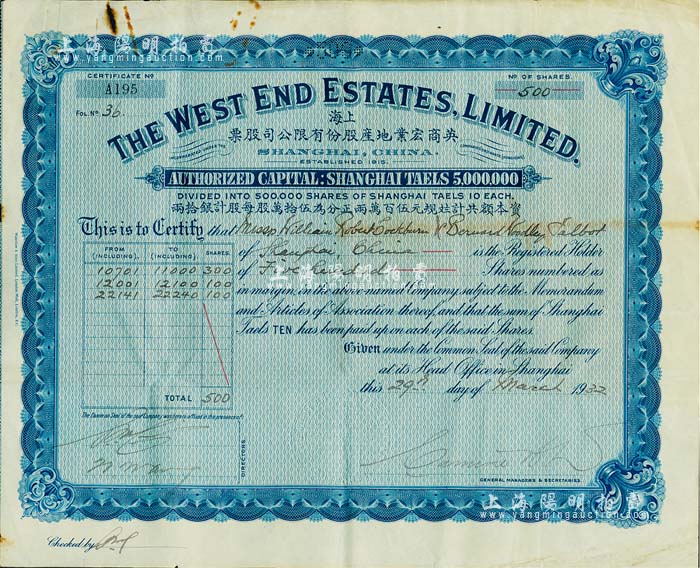 上海陽明拍賣
www.yangmingauction.com
CERTIFICATE Nº
A195
Nº OF SHARES.
500
FOL. Nº 36
THE WEST END ESTATES, LIMITED.
上海
英商宏業地産股份有限公司股票
SHANGHAI, CHINA.
ESTABLISHED 1915.
AUTHORIZED CAPITAL: SHANGHAI TAELS 5,000,000
DIVIDED INTO 500,000 SHARES OF SHANGHAI TAELS 10 EACH.
實本額共計規元伍百萬兩正分為伍拾萬股每股計銀拾兩
This is to Certify that Messrs William Robert Cockburn & Bernard Hadley Talbot
of Shanghai, China is the Registered Holder
of Five Hundred Shares numbered as
in margin, in the above named Company, subject to the Memorandum
and Articles of Association thereof, and that the sum of Shanghai
Taels TEN has been paid up on each of the said Shares.
Given under the Common Seal of the said Company
at its Head Office in Shanghai
this 29th day of March 1932
FROM (INCLUDING). TO (INCLUDING). SHARES.
10701 11000 300
12001 12100 100
22141 22240 100
TOTAL 500
The Common Seal of the said Company was hereto affixed in the presence of:
DIRECTORS.
GENERAL MANAGERS & SECRETARIES.
上海陽明拍賣
www.yangmingauction.com
Checked by